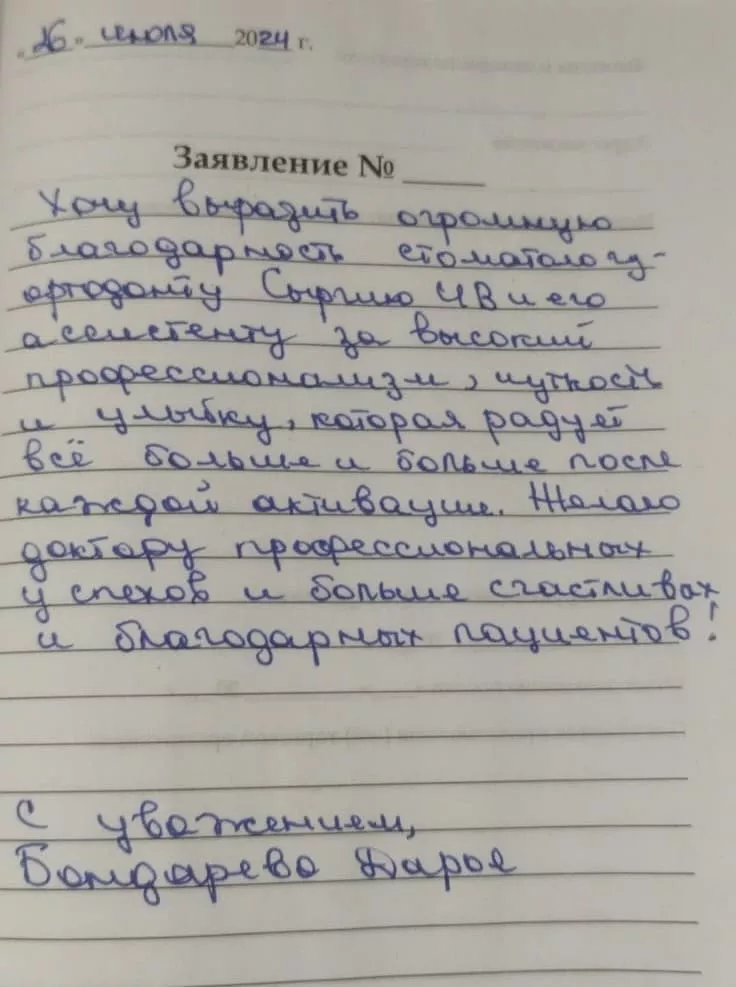 "26" июля 2024 г.
Заявление № ____
Хочу выразить огромную
благодарность стоматологу-
ортодонту ЧВ и его
ассистенту за высокий
профессионализм, чуткость
и улыбку, которая радует
всё больше и больше после
каждой активации. Желаю
доктору профессиональных
успехов и больше счастливых
и благодарных пациентов!
С уважением,
Бондарева Дарья